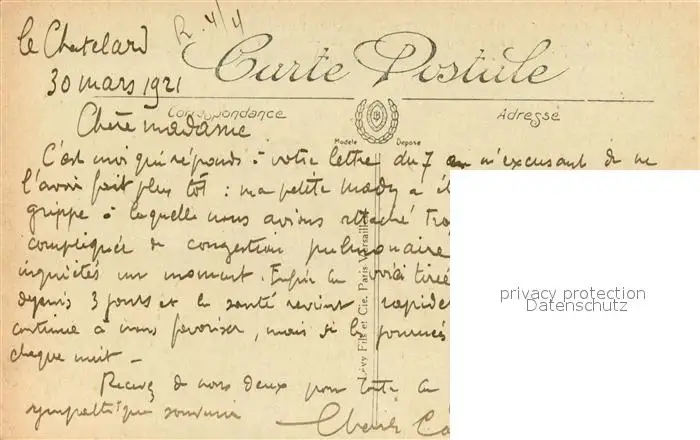 R. 4/4
le Chatelard
30 mars 1921
Carte Postale
Correspondance
Adresse
Modèle Déposé
Chère madame
C'est moi qui réponds à votre lettre du 7 en m'excusant de ne
l'avoir fait plus tôt : ma petite mady a
grippe à laquelle nous avions attaché
compliquée de congestion pulmonaire
inquiétés un moment. Enfin la voici
depuis 3 jours et la santé revient
continue à nous favoriser, mais si les
chaque nuit -
Recevez de nous deux pour toute la
sympathique souvenir
Lévy Fils et Cie, Paris Versailles
privacy protection
Datenschutz